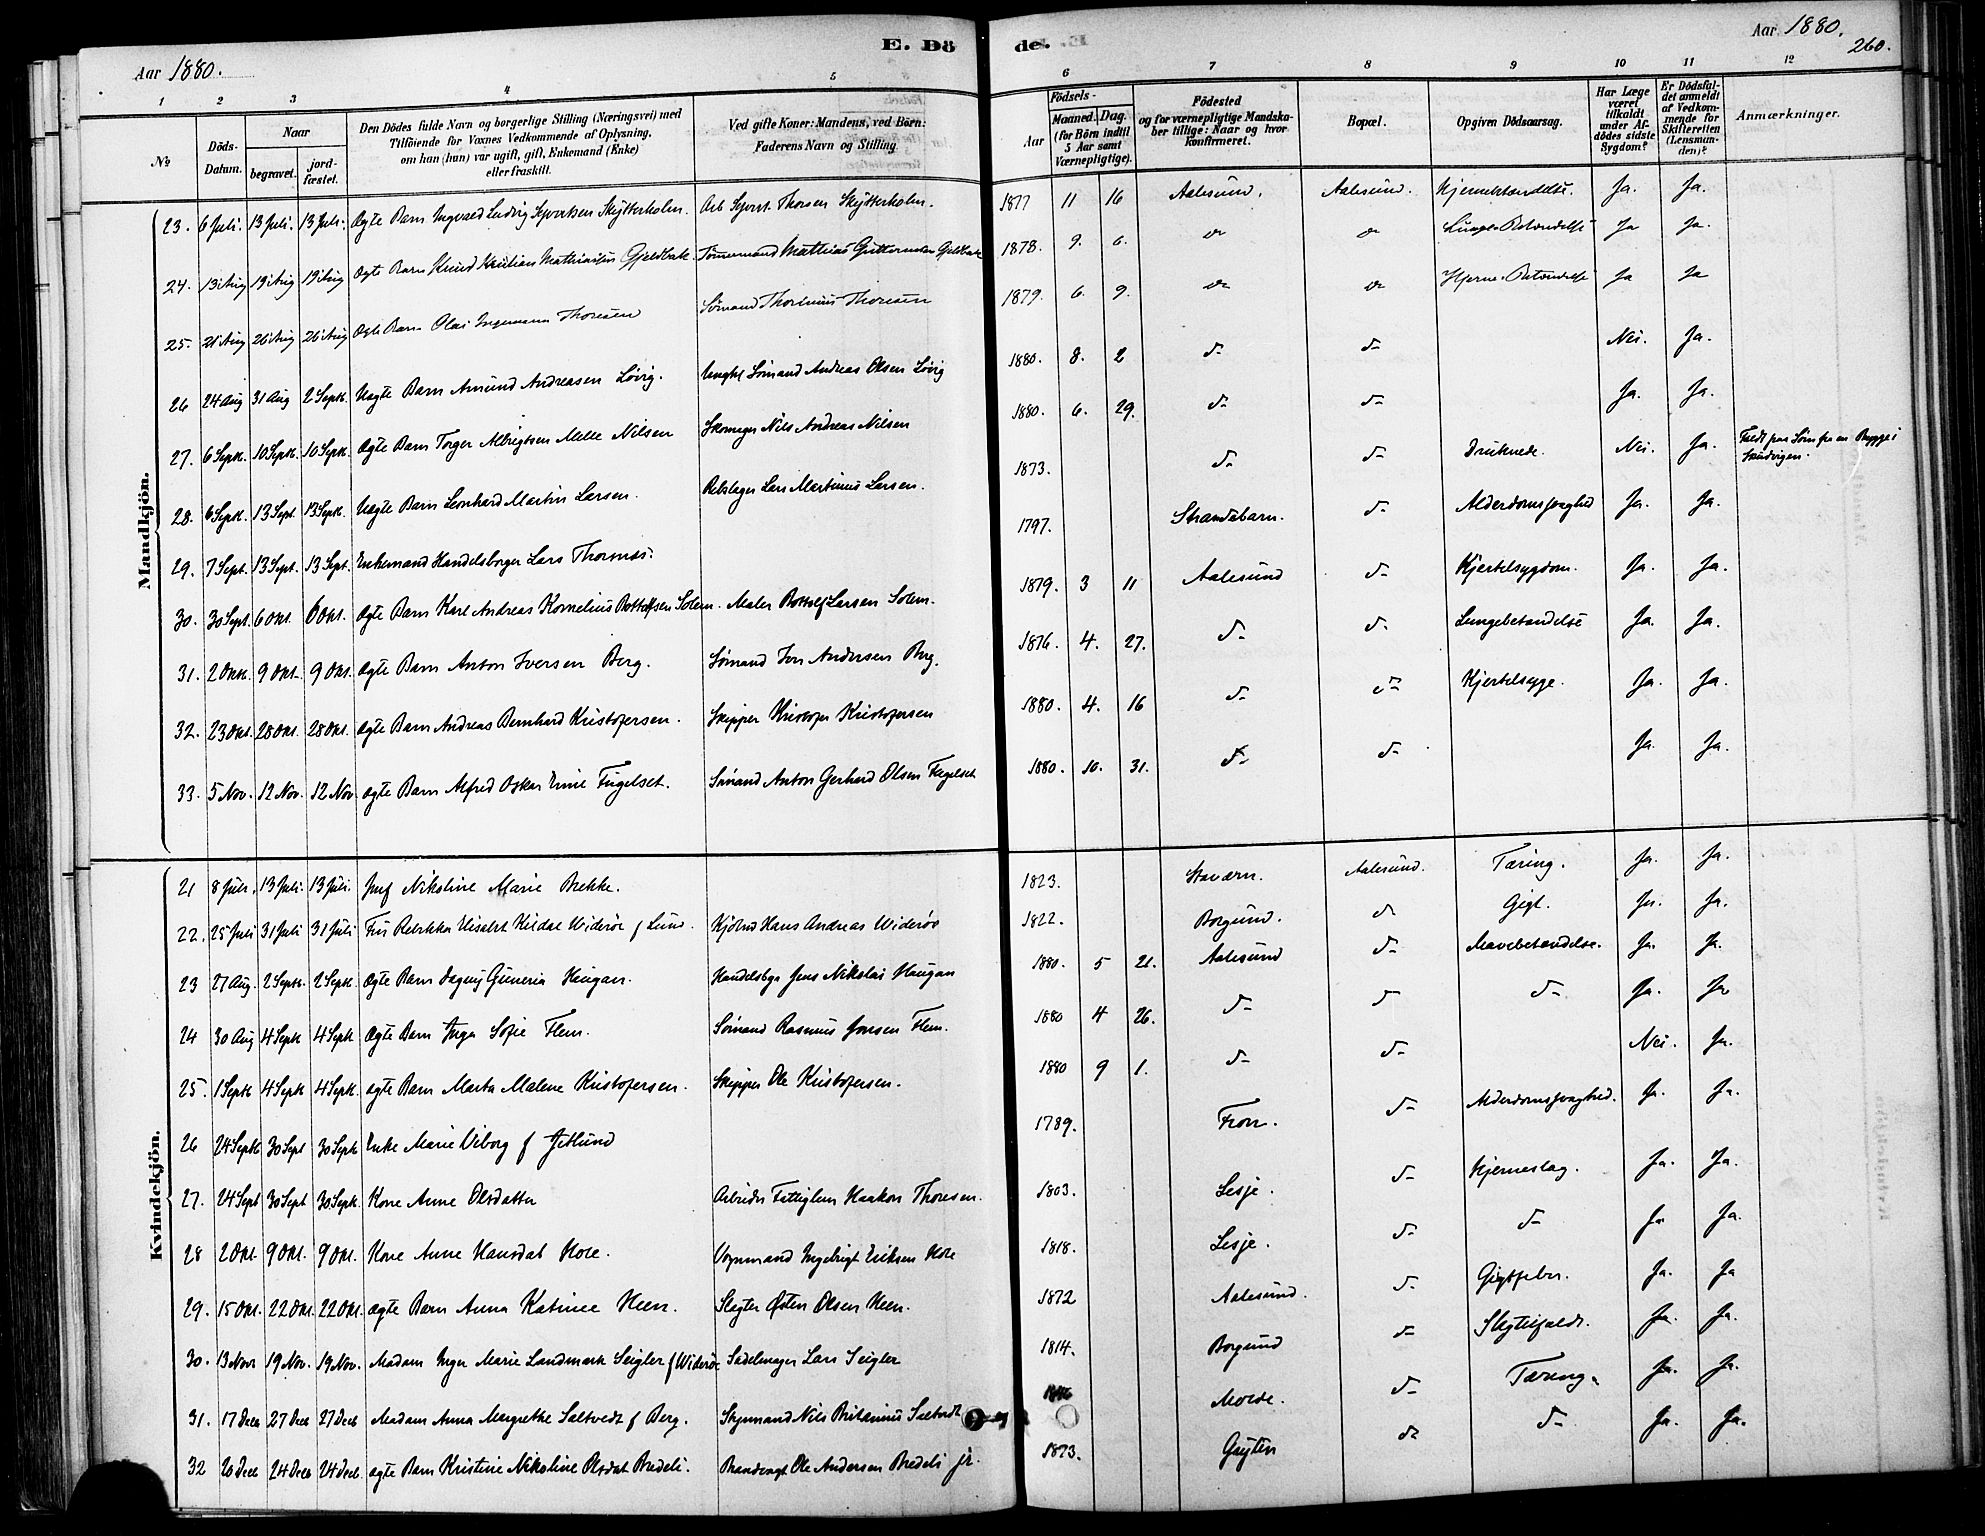 Aar 1880.
E. Dö
de.
Aar 1880.
260.
1 2 3 4 5 6 7 8 9 10 11 12
No
Döds-Datum.
Naar
begravet.
jordfæstet.
Den Dödes fulde Navn og borgerlige Stilling (Næringsvei) med
Tilföiende for Voxnes Vedkommende af Oplysning,
om han (hun) var ugift, gift, Enkemand (Enke)
eller fraskilt.
Ved gifte Koner: Mandens, ved Börn:
Faderens Navn og Stilling
Födsels-
Aar
Maaned. Dag.
(for Börn indtil
5 Aar samt
Værnepligtige).
Födested
og for værnepligtige Mandskaber
tillige: Naar og hvor
konfirmeret.
Bopæl.
Opgiven Dödsaarsag.
Har Læge
været
tilkaldt
under Afdödes
sidste
Sygdom?
Er Dödsfaldet
anmeldt
af Vedkommende
for
Skifteretten
(Lensmanden)?
Anmærkninger.
Mandkjön.
23. 6 Juli. 13 Juli. 13 Juli. Ægte Barn Ingvald Ludvig Syvertsen Skytterholm. Arb Syvert Thorsen Skytterholm. 1877 11 16 Aalesund. Aalesund. Hjernebetændelse. Ja. Ja.
24. 13 Aug 19 Aug 19 Aug Ægte Barn Knud Kristian Mathiasen Gjeldbak Tømmermand Mathias 1878. 9. 6. do do Lunge-Betændelse Ja Ja.
25. 21 Aug 26 Aug 26 Aug Ægte Barn Olai Ingemann Thoresen Sømand Thoresen 1879. 6. 9. do do Hjerne-Betændelse Ja Ja
26 24 Aug 31 Aug 2 Septb. Uægte Barn Amund Andreasen Løvig. Ungkl Sømand Andreas Olsen Løvig 1880. 8. 2 do do Nei. Ja.
27. 6 Septb. 10 Septb. 10 Septb. Ægte Barn Torger Albrigtsen Melle Nilsen Skomager Nils Andreas Nilsen 1880. 6. 29. do do Ja. Ja.
28. 6 Septb. 13 Sept. 13 Septb. Uægte Barn Leonhard Martin Larsen. Rebslager Lars Martinus Larsen. 1873. do do Druknede. Nei. Ja. Faldt paa Søen fra en Brygge i
29. 7 Sept. 13 Sept. 13 Sept. Enkemand Handelsborger Lars Thormæs. 1797. Strandebarn. do Alderdomssvaghed Ja. Ja.
30. 30 Sept. 6 Okt. 6 Okt. Ægte Barn Karl Andreas Kornelius Bottolfsen Solem. Maler Bottolf Larsen Solem. 1879. 3 11 Aalesund do Kjertelsygdom. Ja. Ja.
31. 2 Okt. 9 Okt. 9 Okt. Ægte Barn Anton Iversen Berg. Sømand Iver Andersen Berg. 1876. 4. 27. do do Lungebetændelse Ja. Ja.
32. 23 Okt. 28 Okt. 28 Okt. Ægte Barn Andreas Bernhard Kristofersen. Skipper Kristofer Kristofersen 1880. 4. 16 do do Kjertelsyge. Ja. Ja.
33. 5 Nov. 12 Nov. 12 Nov ægte Barn Alfred Oskar Fugelset. Sømand Anton Gerhard Olsen Fugelset 1880. 10. 31. do do Ja. Ja.
Kvindekjön.
21 8 Juli. 13 Juli. 13 Juli. Jmf Nikoline Marie Brekke. 1823. Staværn. Aalesund. Tæring. Ja. Ja.
22. 25 Juli 31 Juli 31 Juli Fru Rebekka Kildal Widerøe f Lund. Kjøbmd Hans Andreas Widerøe 1822. Borgund. do Gigt. Ja. Ja.
23 27 Aug. 2 Septb. 2 Septb. Ægte Barn Dagny Guneria Haugan. Handelsbgr Jens Nikolai Haugan 1880. 5 21. Aalesund do Mavebetændelse. Ja. Ja.
24 30 Aug 4 Septb 4 Septb. Ægte Barn Inga Sofie Flem. Sømand Rasmus Jonsen Flem. 1880 4 26. do do do Ja. Ja
25. 1 Septb 4 Septb 4 Septb. ægte Barn Marta Malene Kristofersen. Skipper Ole Kristofersen. 1880 9 1. do do Nei. Ja.
26 24 Septb 30 Sept 30 Septb Enke Marie Viborg f Jetlund 1789. Fron. do Alderdomssvaghed. Ja. Ja.
27. 24 Sept 30 Sept 30 Septb. Kone Anne Olsdatter Arbeider Fattiglem Haakon Thoresen. 1803. Lesje. do Hjerneslag. Ja. Ja.
28 2 Okt. 9 Okt. 9 Okt. Kone Anne Hansdat Hole. Vognmand Ingebrigt Eriksen Hole 1818. Lesje. do do Ja Ja.
29. 15 Okt. 22 Okt. 22 Okt. ægte Barn Anna Katinee Heen. Slagter Østen Olsen Heen. 1872 Aalesund. do Gigtfeber. Ja. Ja
30. 13 Novr 19 Nov. 19 Nov. Madam Inger Marie Landmark Seigler f Widerøe Sadelmager Lars Seigler 1814. Borgund do Ja. Ja.
31. 17 Decb 27 Decb 27 Decb Madam Anna Margrethe Saltvedt f Berg. Nils Saltvedt Molde. do Tæring. Ja. Ja.
32 20 Decb 24 Decb 24 Decb. ægte Barn Kristine Nikoline Olsdat Bredeli. Ole Andersen Bredeli jr. 1873. Grytten do do Ja. Ja.